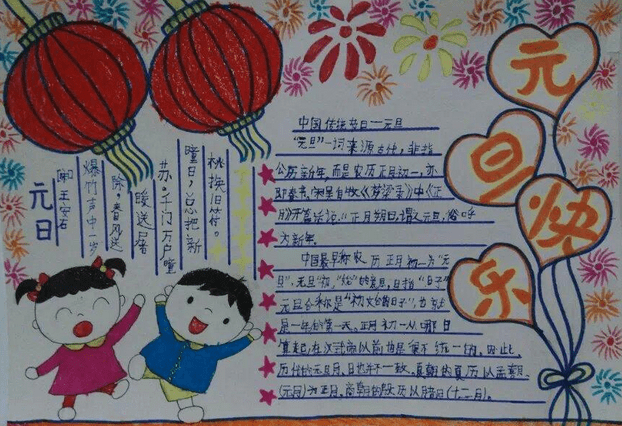 元旦快乐
元日
王安石
爆竹声中一岁
除,春风送
暖送屠
苏。千门万户曈
曈日,总把新
换旧符。
中国传统节日—元旦
"元旦"一词来源古代,非指
公历新年,而是农历正月初一,亦
即春节,吴自牧《梦梁录》中《正
月》开篇话说:"正月朔日,谓之元旦,俗呼
为新年
中国最早称农历正月初一为"元
旦",元是"初",的意思,旦指"日子"
元旦合称是"初始的日子",也就
是一年的第一天。正月初一从哪日
算起,在汉武帝以前也是很不统一的,因此,
历代的元旦月、日也并不一致。夏朝的夏历以孟喜月
(元月)为正月,商朝的殷历以腊月(十二月)。